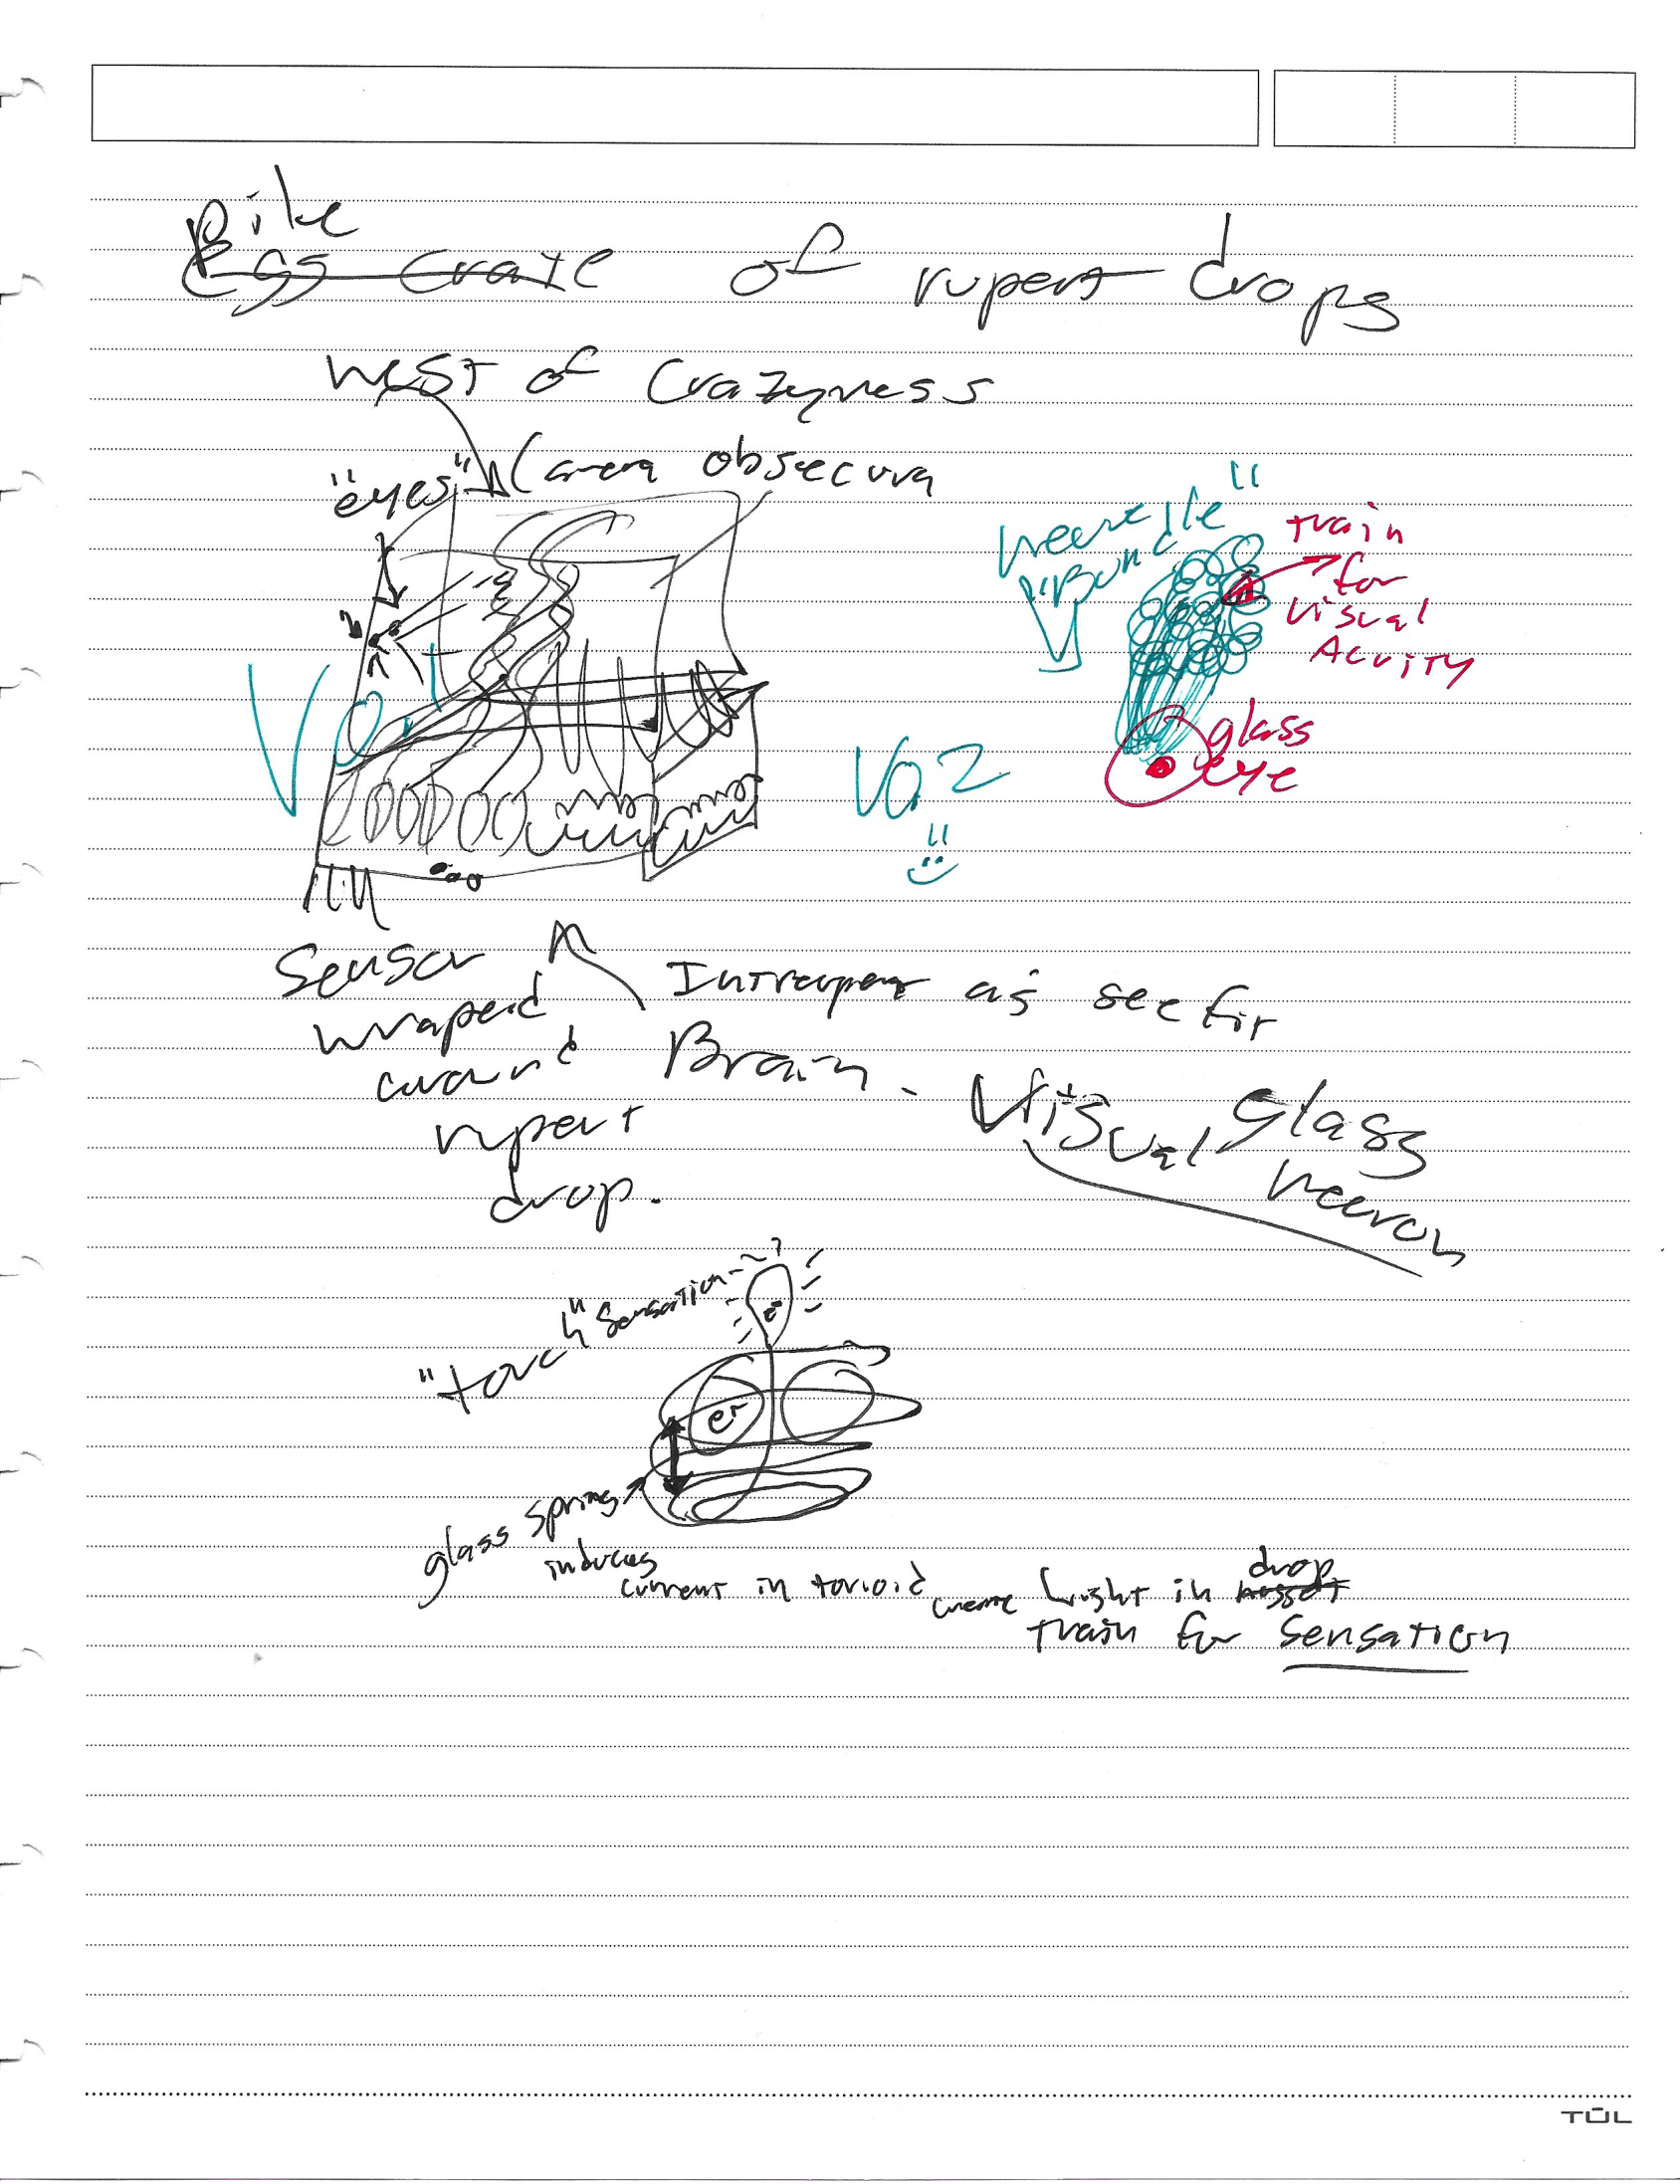 Pile
Egg crate of rupert drops
nest of Crazyness
"eyes" Camera obsecura
"
needle
"Bund
train
for
visual
Acuity
V0.1
V0.2
glass
eye
Sensor
wraped
around
rupert
drop.
as see fit
Brain.
Visual Glass
neeron
"touch" Sensation
e-
glass spring
induces
current in toroid
create Light in drop
train for Sensation
TUL